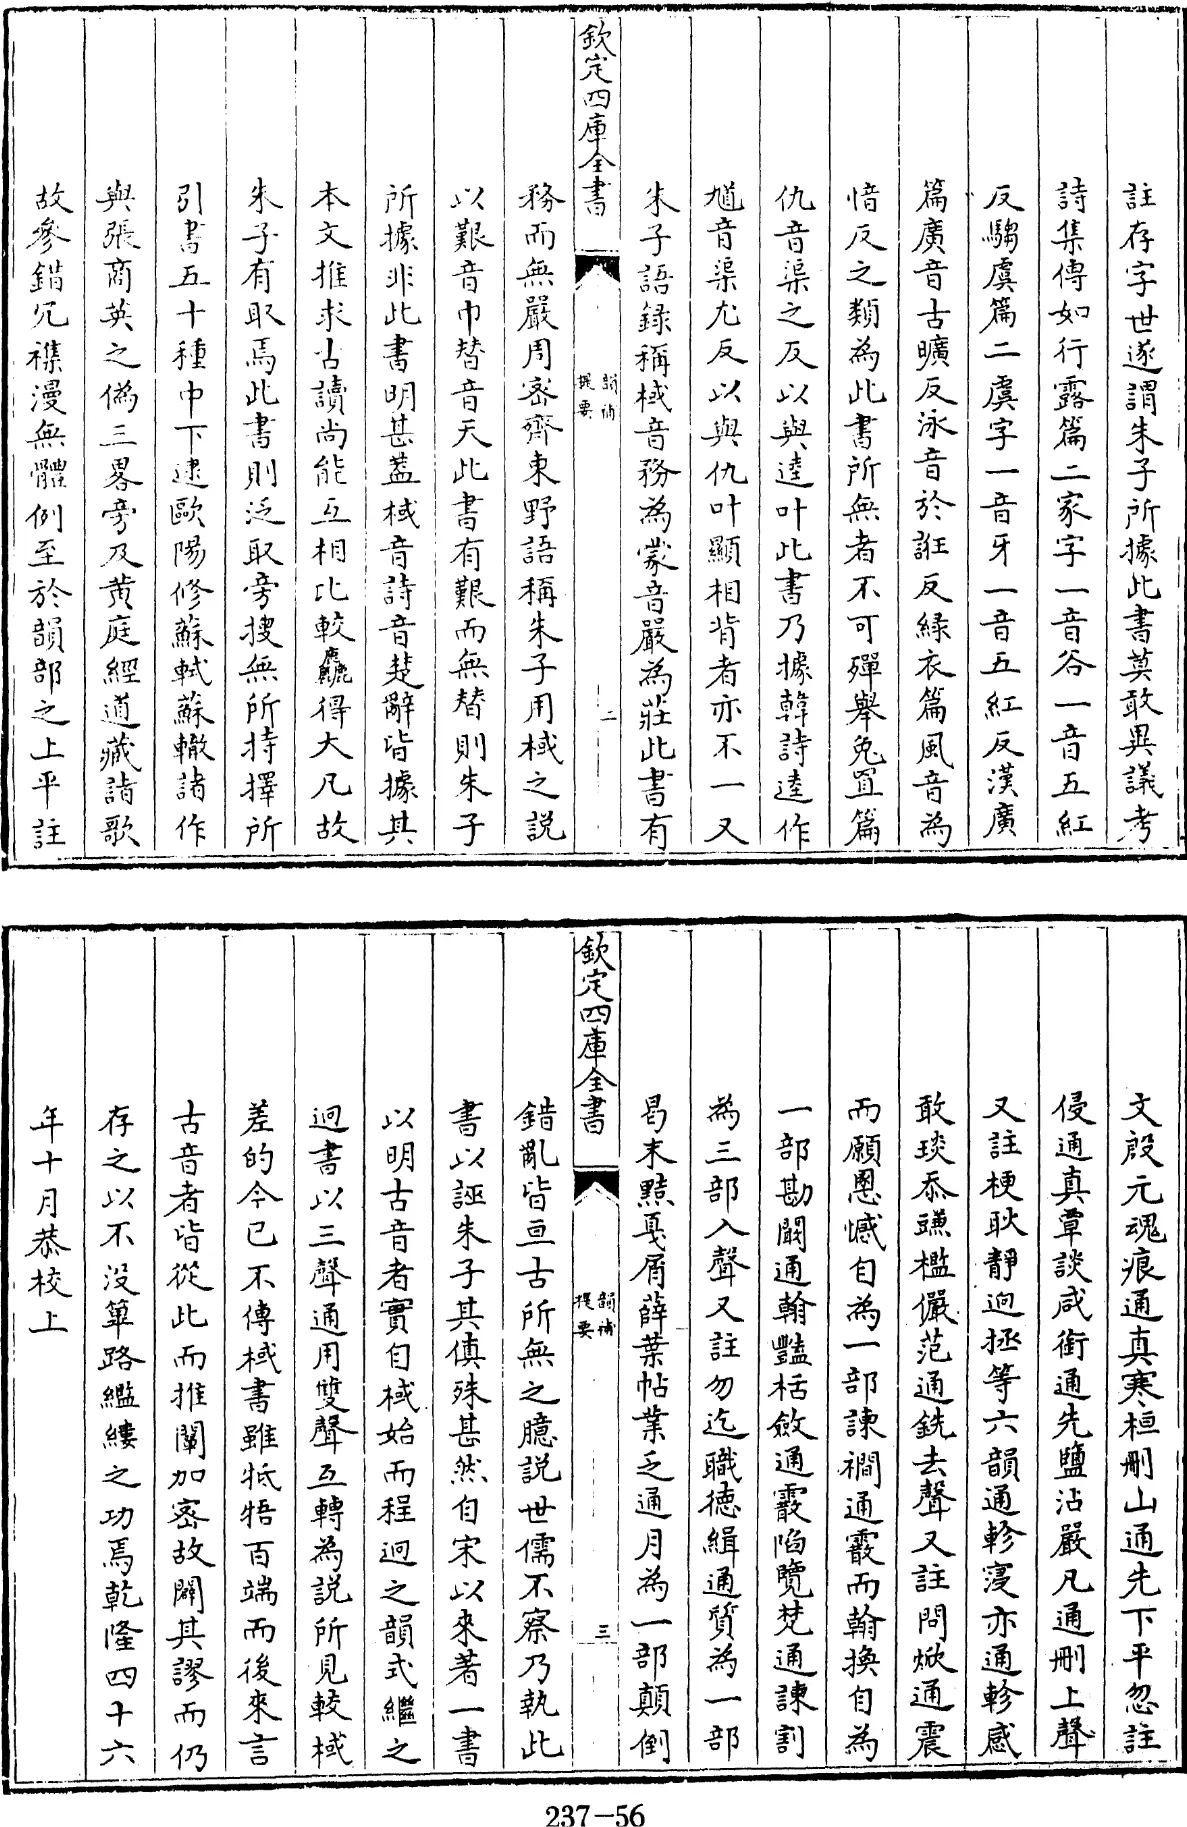 註存字世遂謂朱子所據此書莫敢異議考
詩集傳如行露篇二家字一音谷一音五紅
反騶虞篇二虞字一音牙一音五紅反漢廣
篇廣音古曠反泳音於誑反綠衣篇風音為
愔反之類為此書所無者不可殫舉兔罝篇
仇音渠之反以與逵叶此書乃據韓詩逵作
馗音渠尤反以與仇叶顯相背者亦不一又
朱子語錄稱棫音務為蒙音嚴為莊此書有
欽定四庫全書
韻補
提要
二
務而無嚴周密齊東野語稱朱子用棫之說
以艱音巾替音天此書有艱而無替則朱子
所據非此書明甚葢棫音詩音楚辭皆據其
本文推求古讀尚能互相比較麤得大凡故
朱子有取焉此書則泛取旁搜無所持擇所
引書五十種中下逮歐陽修蘇軾蘇轍諸作
與張商英之偽三畧旁及黃庭經道藏諸歌
故參錯冗襍漫無體例至於韻部之上平註
文殷元魂痕通真寒桓刪山通先下平忽註
侵通真覃談咸銜通先鹽沾嚴凡通刪上聲
又註梗耿靜迥拯等六韻通軫寑亦通軫感
敢琰忝豏檻儼范通銑去聲又註問焮通震
而願慁憾自為一部諫襉通霰而翰換自為
一部勘闞通翰豔㮇斂通霰陷覽梵通諫割
為三部入聲又註勿迄職德緝通質為一部
曷末黠戛屑薛葉帖業乏通月為一部顛倒
欽定四庫全書
韻補
提要
三
錯亂皆亘古所無之臆說世儒不察乃執此
書以誣朱子其傎殊甚然自宋以來著一書
以明古音者實自棫始而程迥之韻式繼之
迥書以三聲通用雙聲互轉為說所見較棫
差的今已不傳棫書雖牴牾百端而後來言
古音者皆從此而推闡加密故闢其謬而仍
存之以不沒篳路繿縷之功焉乾隆四十六
年十月恭校上
237-56